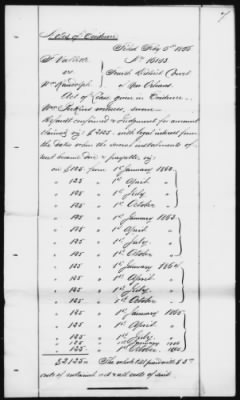 Note of Evidence
Filed Feby 5th 1866
No 16185
F Vallette
vs
Wm Randolph
Fourth District Court
of New Orleans
Act of Lease given in Evidence
Wm Jenkins witness, sworn
Default confirmed & Judgment for amount
claimed viz $2125 with legal interest from
the dates when the several instalments of
rent became due & payable, viz
on $125 from 1st January 1862
" 125 " 1st April "
" 125 " 1st July "
" 125 " 1st October "
" 125 " 1st January 1863
" 125 " 1st April "
" 125 " 1st July "
" 125 " 1st October "
" 125 " 1st January 1864
" 125 " 1st April "
" 125 " 1st July "
" 125 " 1st October "
" 125 " 1st January 1865
" 125 " 1st April "
" 125 " 1st July
" 125 " 1st January
" 125 " 1st October
$2125 The whole till paid with
costs of and all costs of suit